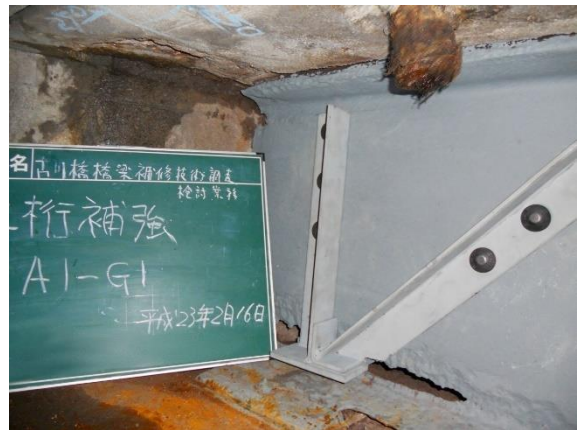 名 古川橋橋梁補修技術調査
検討業務
桁補強
A1-G1
平成23年2月16日